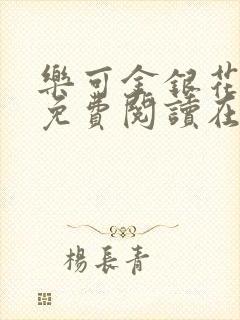 樂可金銀花
免費閱讀在
楊長青